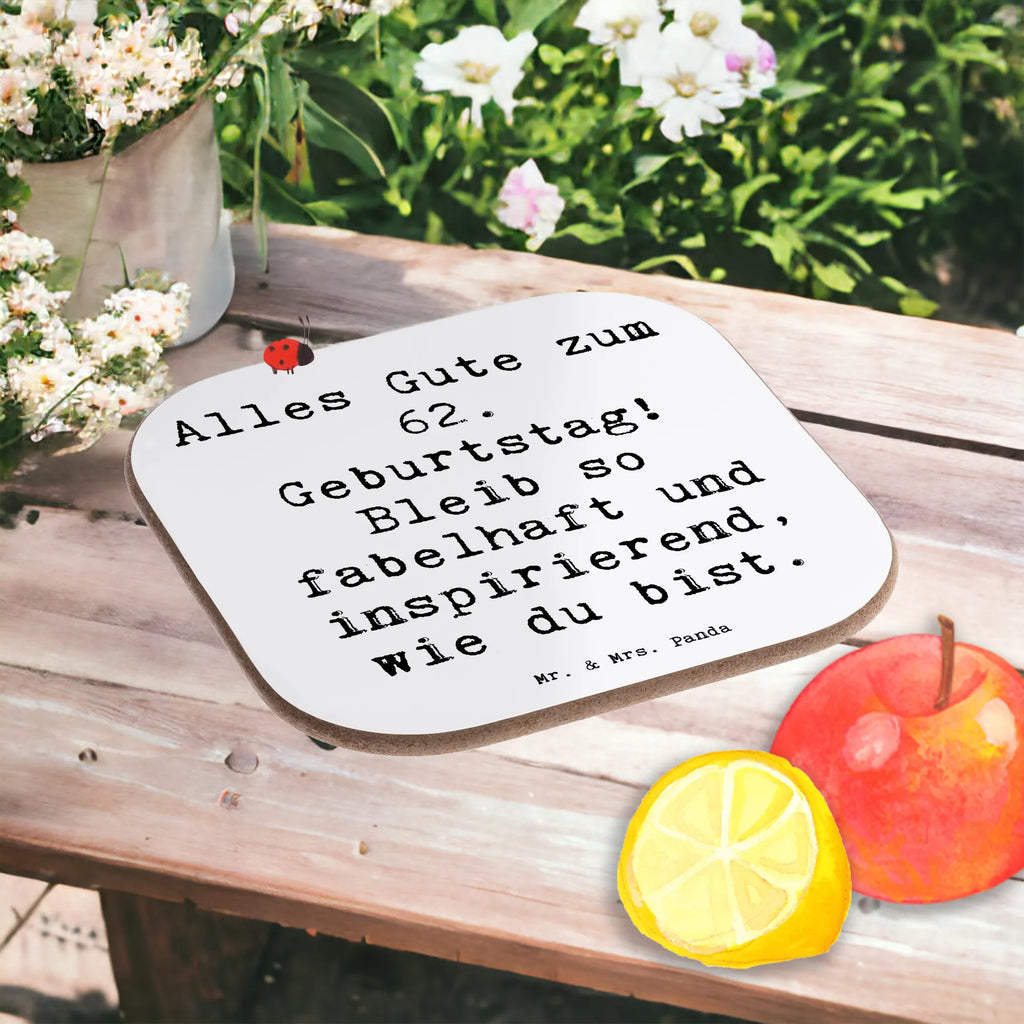 Alles Gute zum
62.
Geburtstag!
Bleib so
fabelhaft und
inspirierend,
wie du bist.
Mr. & Mrs. Panda